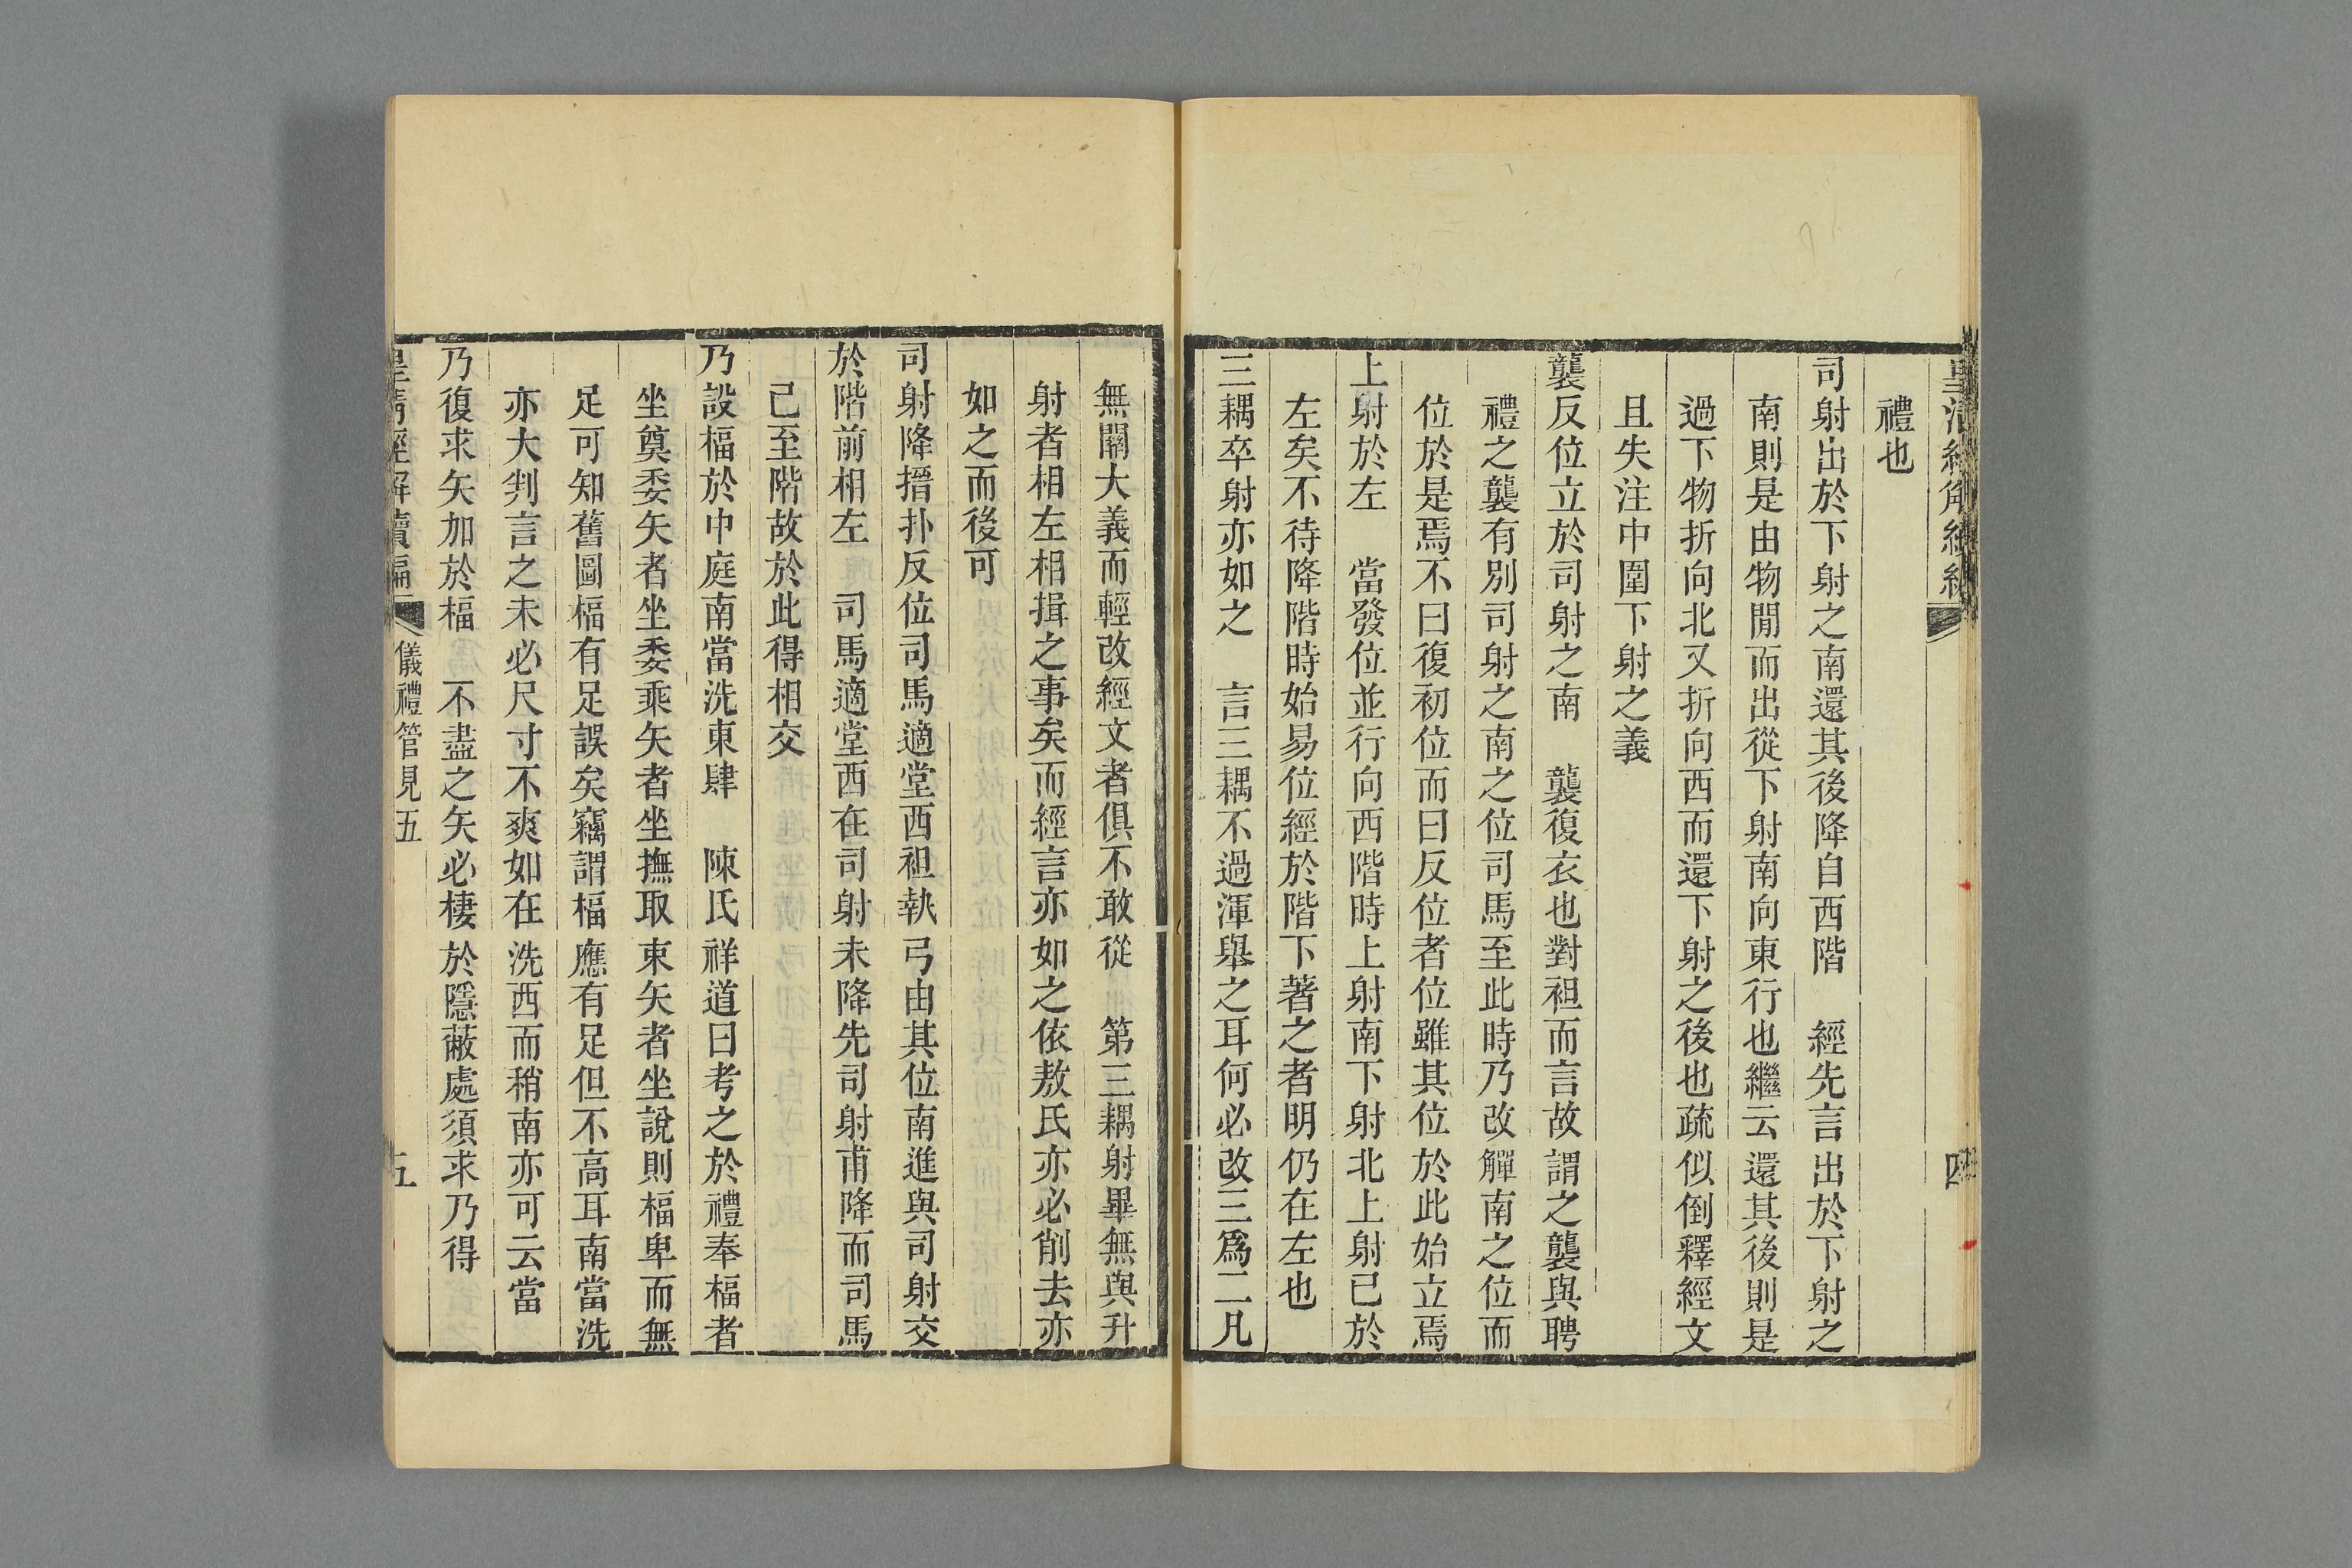 禮也
司射出於下射之南還其後降自西階　經先言出於下射之
南則是由物閒而出從下射南向東行也繼云還其後則是
過下物折向北又折向西而還下射之後也疏似倒釋經文
且失注中圍下射之義
襲反位立於司射之南　襲復衣也對袒而言故謂之襲與聘
禮之襲有別司射之南之位司馬至此時乃改觶南之位而
位於是焉不曰復初位而曰反位者位雖其位於此始立焉
上射於左　當發位並行向西階時上射南下射北上射已於
左矣不待降階時始易位經於階下著之者明仍在左也
三耦卒射亦如之　言三耦不過渾舉之耳何必改三爲二凡
無關大義而輕改經文者俱不敢從　第三耦射畢無與升
射者相左相揖之事矣而經言亦如之依敖氏亦必削去亦
如之而後可
司射降搢扑反位司馬適堂西袒執弓由其位南進與司射交
於階前相左　司馬適堂西在司射未降先司射甫降而司馬
已至階故於此得相交
乃設楅於中庭南當洗東肆　陳氏祥道曰考之於禮奉楅者
坐奠委矢者坐委乘矢者坐撫取東矢者坐說則楅卑而無
足可知舊圖楅有足誤矣竊謂楅應有足但不高耳南當洗
亦大判言之未必尺寸不爽如在洗西而稍南亦可云當
乃復求矢加於楅　不盡之矢必棲於隱蔽處須求乃得
皇清經解續編　儀禮管見五　五